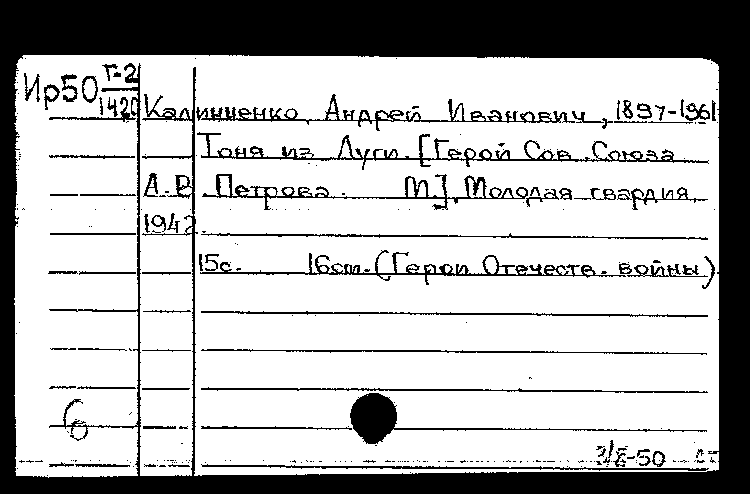 Ир50 Г-2
1420
Калиниченко, Андрей Иванович, 1897-1961
Тоня из Луги. [Герой Сов. Союза
А.В. Петрова. М.], Молодая гвардия,
1942.
15с. 16cm. (Герои Отечеств. войны)
6
-50